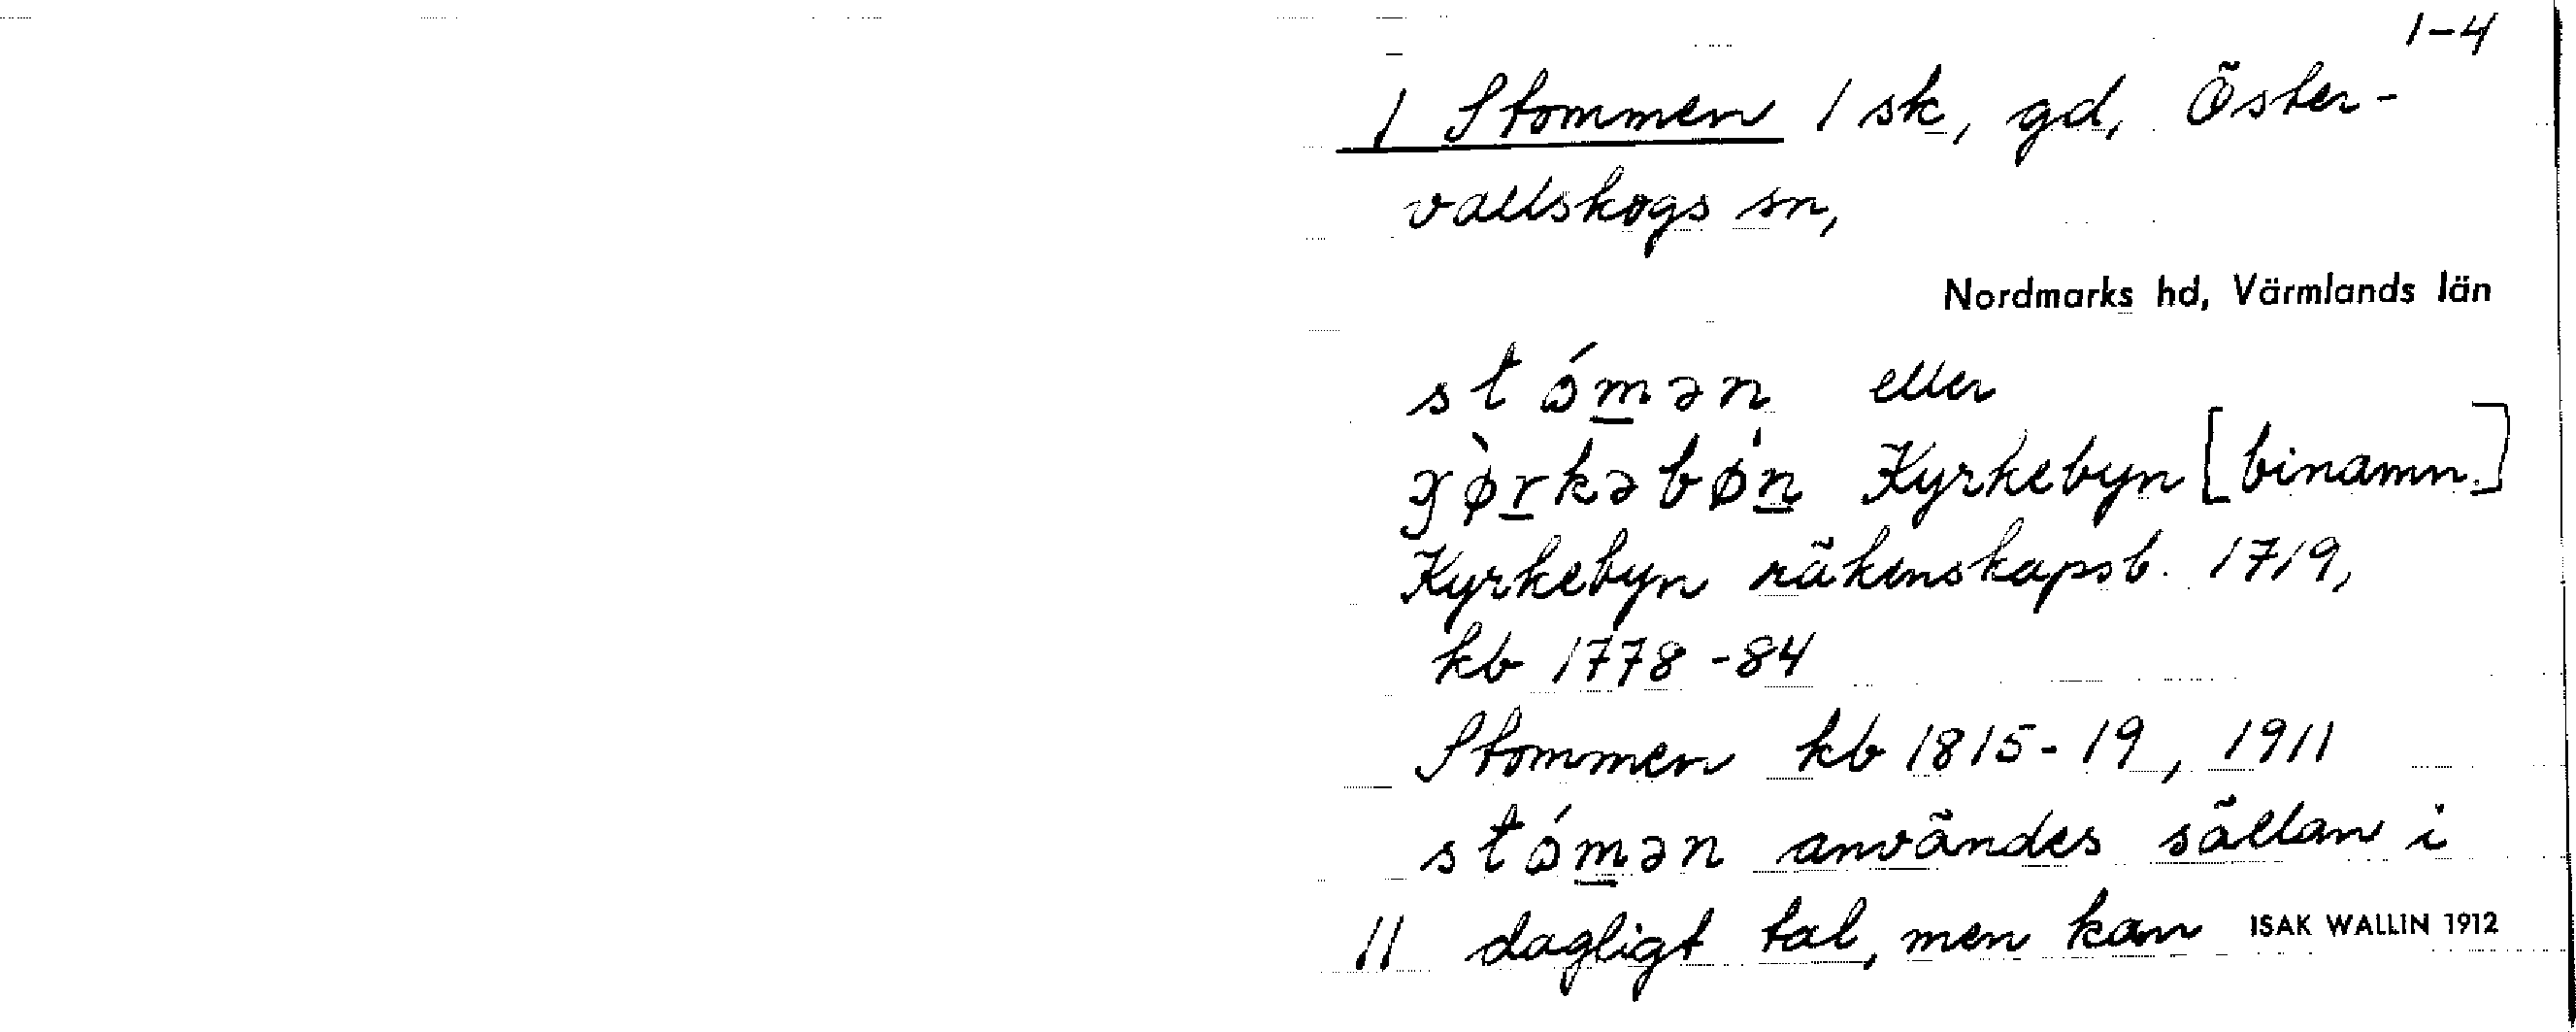 1-4
1 Stommen 1 sk, gd, Öster-
vallskogs sn,
Nordmarks hd, Värmlands län
stó̱mən eller
kyrkebyn [binamn.]
Kyrkebyn räkenskapsb. 1719,
kb 1778-84
Stommen kb 1815-19, 1911
stóm̱ən användes sällan i
11 dagligt tal, men kan
ISAK WALLIN 1912